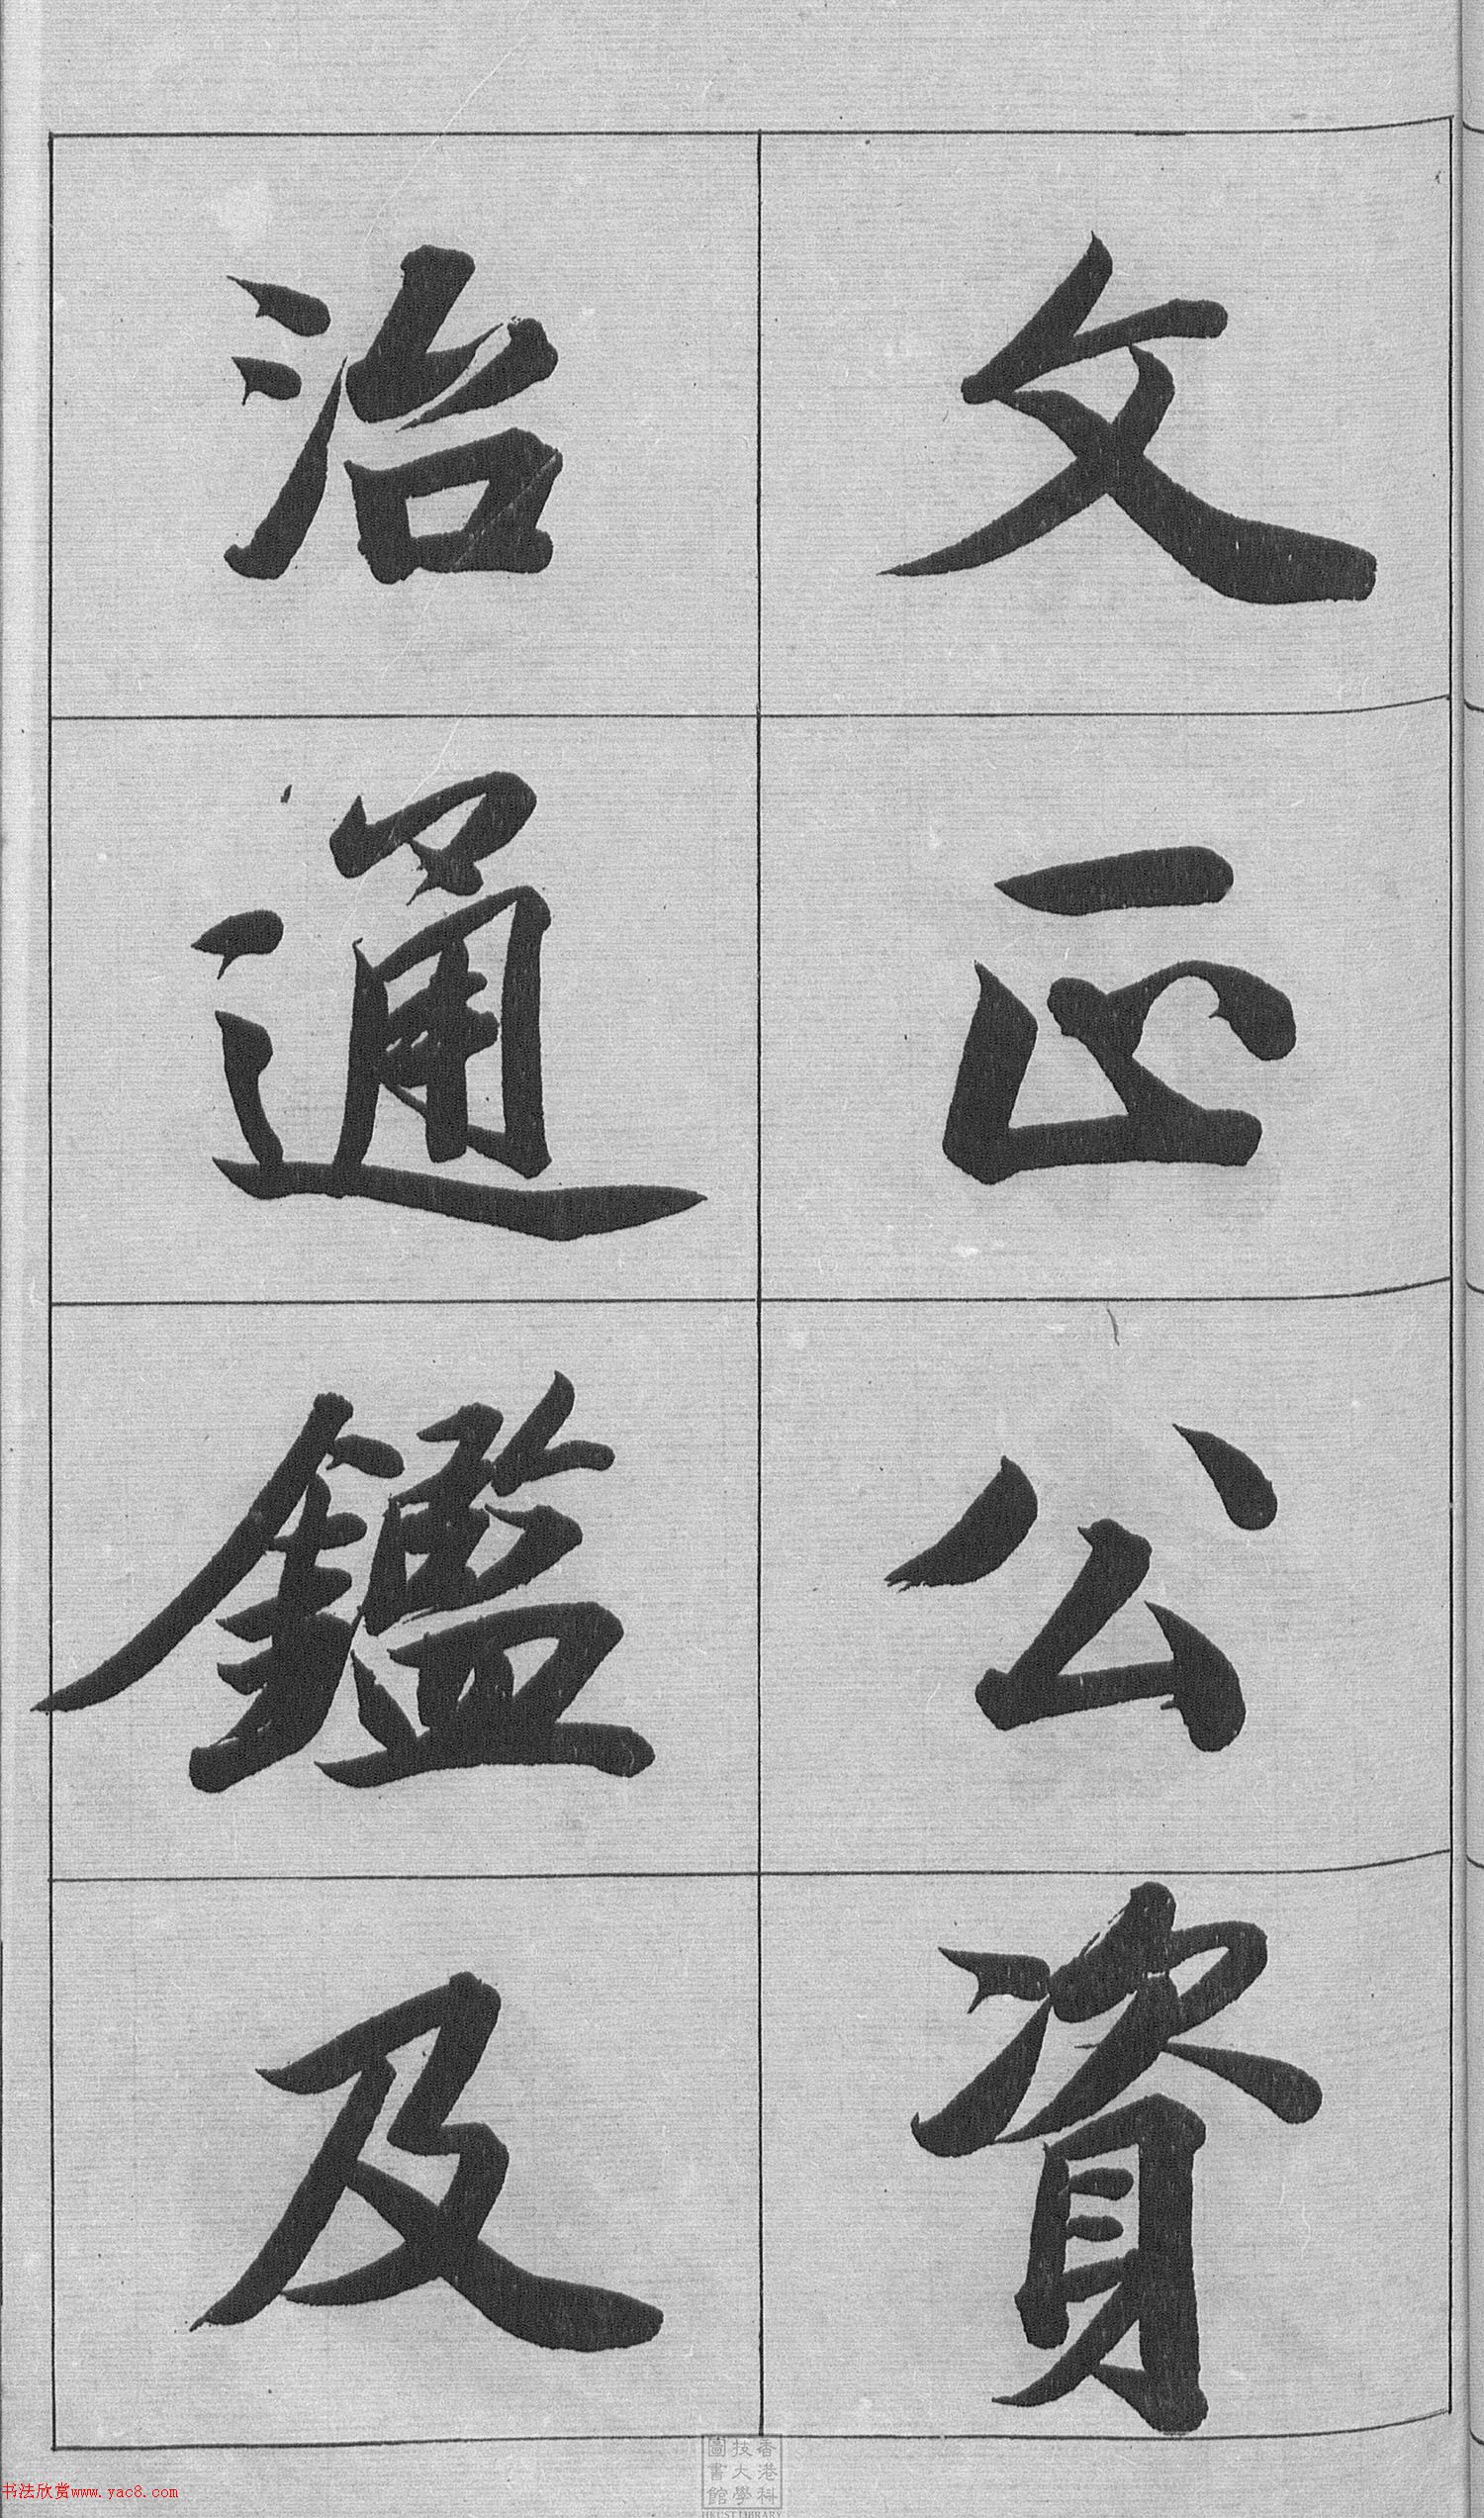 文正公資
治通鑑及
香港科
技大學
圖書館
HKUST LIBRARY
书法欣赏www.yac8.com